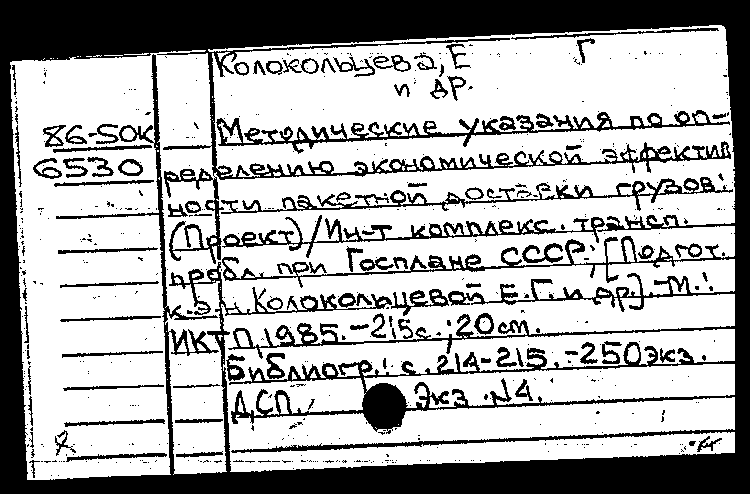 Колокольцева, Е Г
и др.
86-50к Методические указания по оп-
6530 ределению экономической эффектив
ности пакетной доставки грузов:
(Проект)/Ин-т комплекс. трансп.
пробл. при Госплане СССР; [Подгот.
к.э.н. Колокольцевой Е.Г. и др].-М.:
ИКТП, 1985.-215с.; 20см.
Библиогр.: с. 214-215.-250экз.
ДСП. Экз. N4.